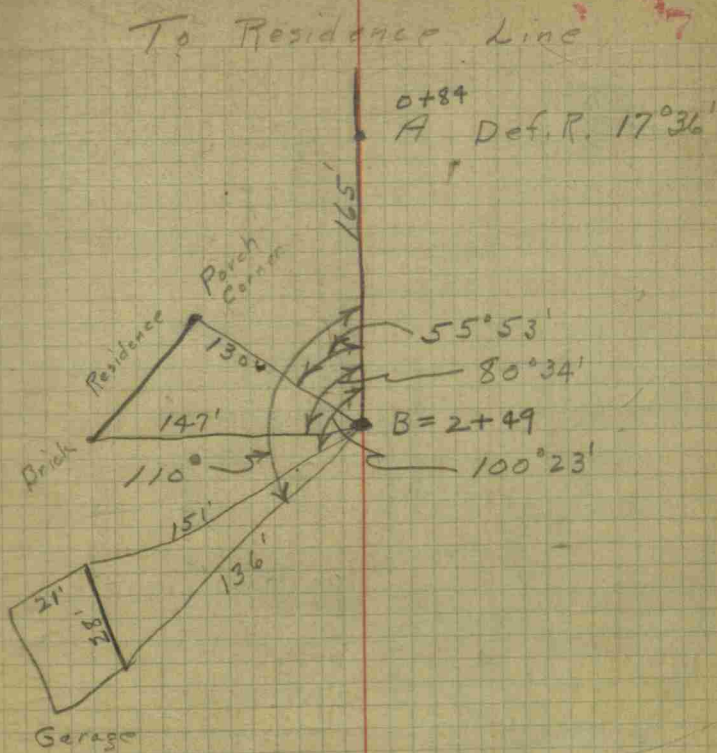 To Residence Line
0+84
A Def. R. 17°36'
165'
Porch
Corner
Residence
130'
55°53'
80°34'
147'
B = 2+49
Brick
110°
100°23'
151'
136'
21'
28'
Garage